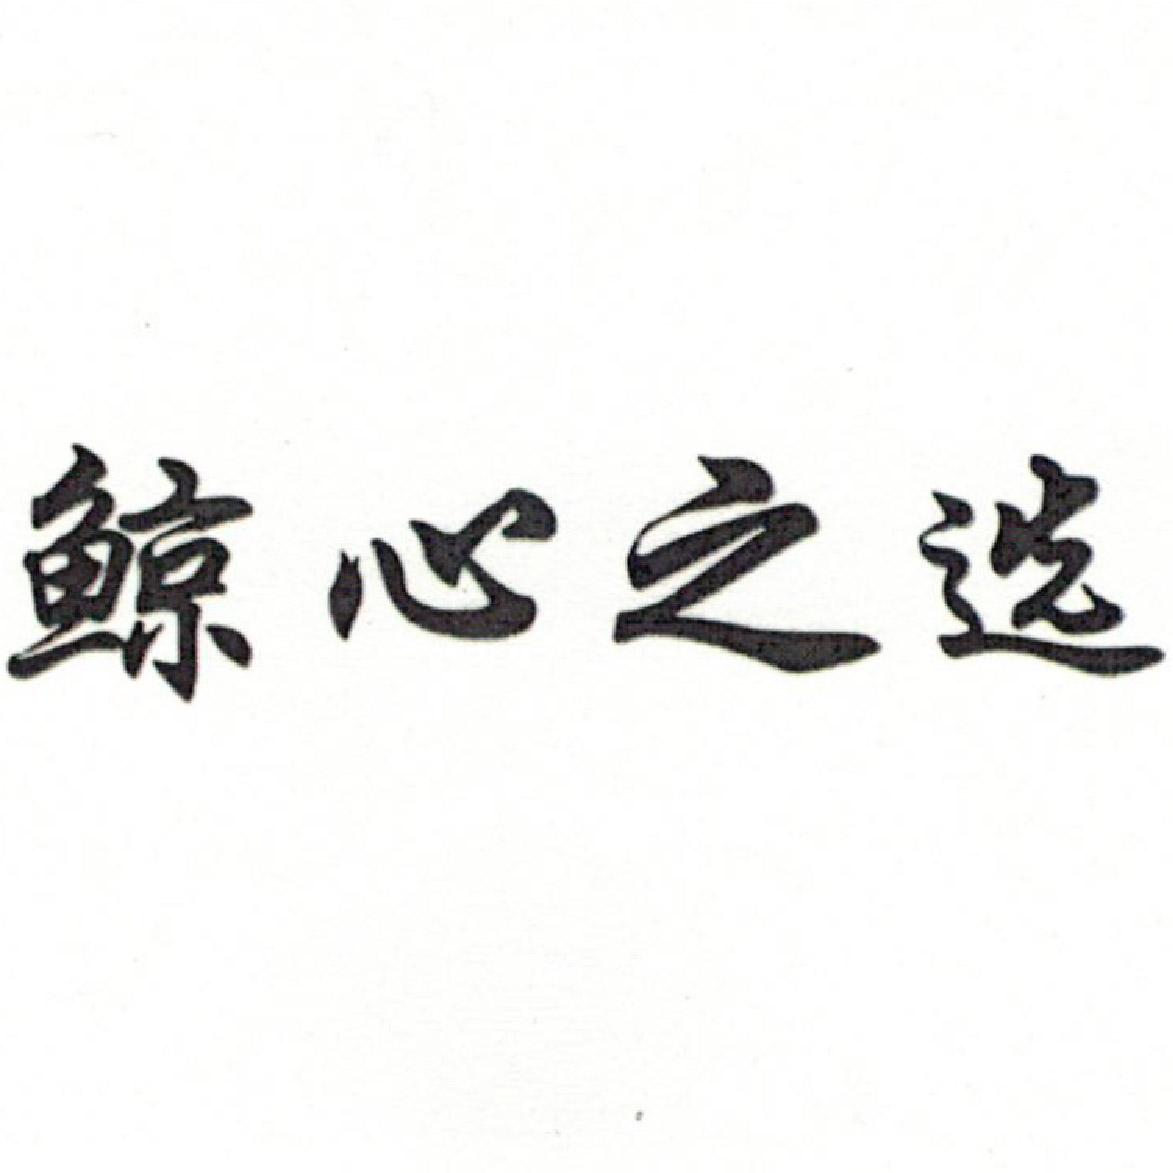 鲸心之选